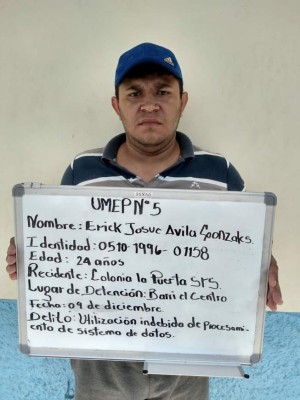 UMEP Nº 5
Nombre: Erick Josue Avila Goonzaks.
Identidad: 0510-1996-01158
Edad: 24 años
Recidente: Colonia la Puerta SPS.
Lugar de Detención: Barri el Centro
Fecha: 09 de diciembre
Delito: Utilización indebida de Procesami-
ento de sistema de datos.